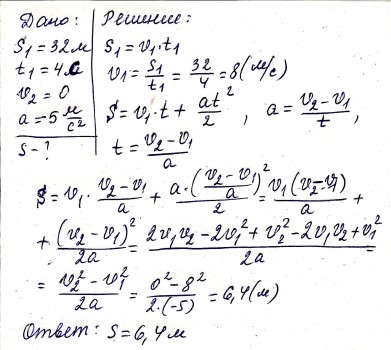 Дано:
S₁ = 32 м
t₁ = 4 с
v₂ = 0
a = 5 м/с²
S - ?
Решение:
S₁ = v₁ · t₁
v₁ = S₁/t₁ = 32/4 = 8 (м/с)
S = v₁ · t + at²/2 , a = (v₂ - v₁)/t ,
t = (v₂ - v₁)/a
S = v₁ · (v₂ - v₁)/a + a · ((v₂ - v₁)/a)²/2 = v₁(v₂ - v₁)/a +
+ (v₂ - v₁)²/2a = (2v₁v₂ - 2v₁² + v₂² - 2v₁v₂ + v₁²)/2a =
= (v₂² - v₁²)/2a = (0² - 8²)/(2·(-5)) = 6,4 (м)
Ответ: S = 6,4 м